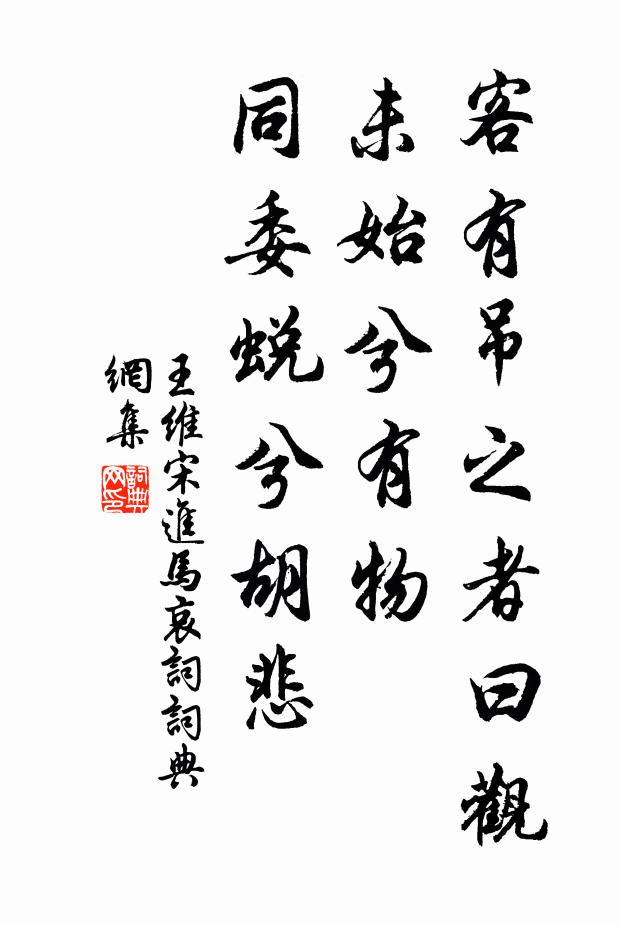 客有吊之者曰觀
未始兮有物
同委蛻兮胡悲
王維宋進馬哀詞詞典
網集
詞典
网印